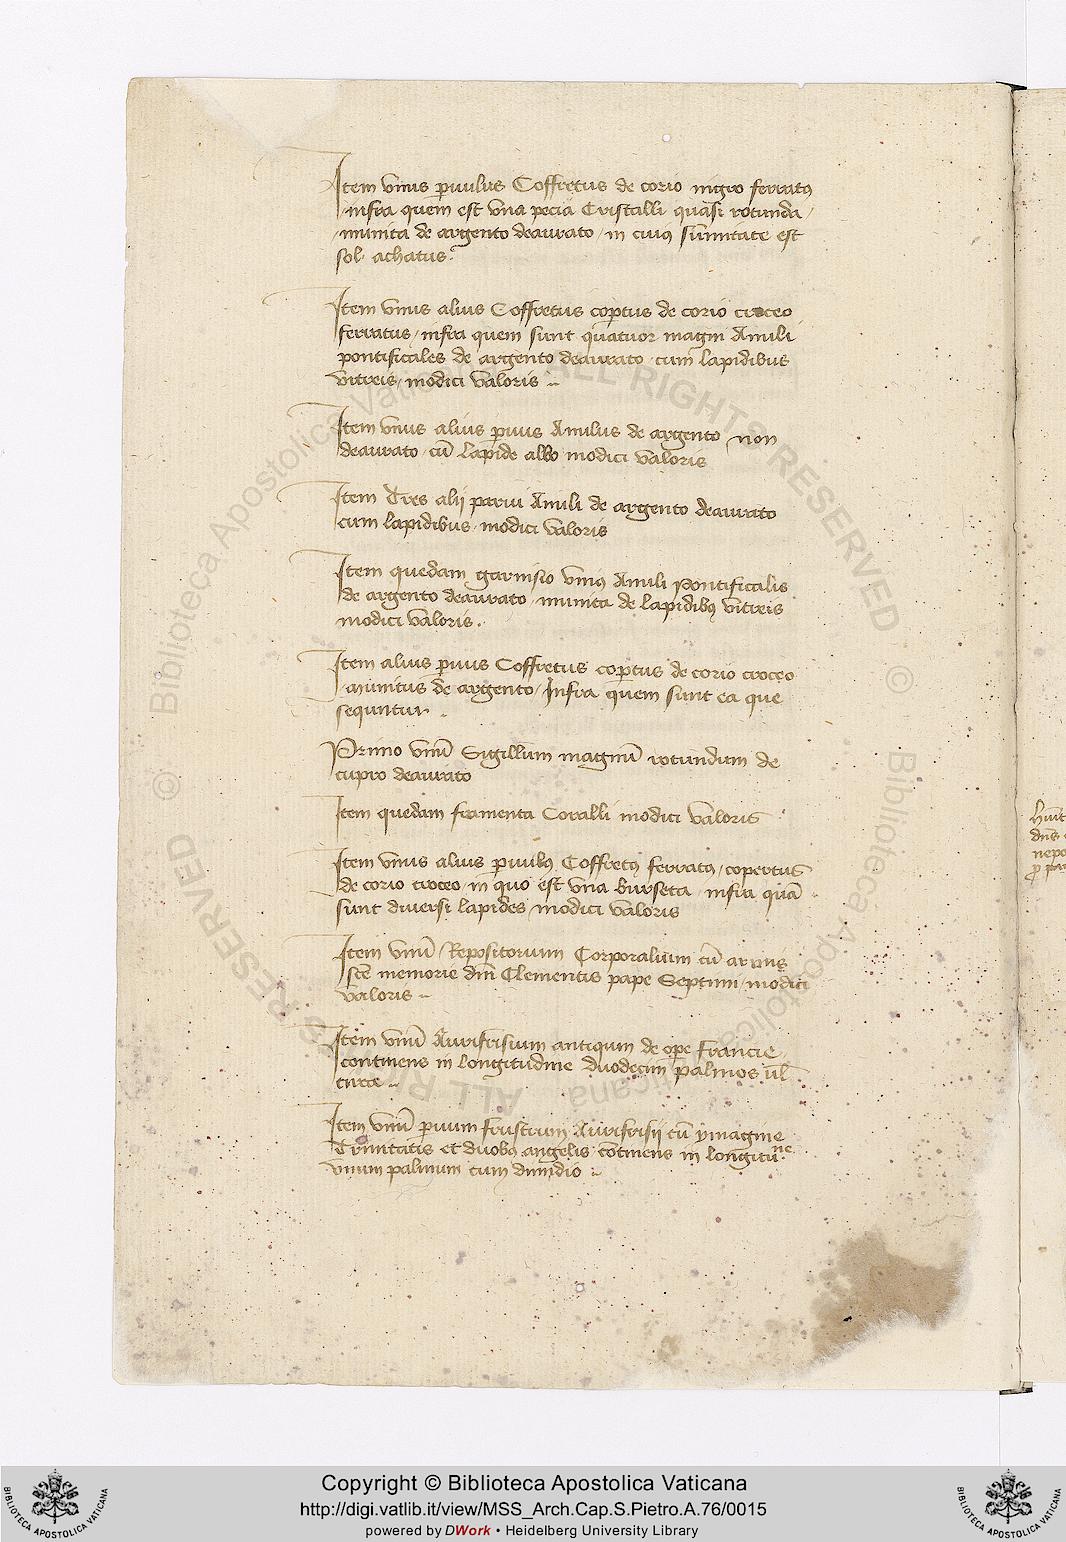 Item vnus pͣuulus Coffretus de corio nigro ferratꝰ
infra quem est vna pecia Cristalli quasi rotunda /
munita de argento deaurato / in cuiꝰ su͞mitate est
sol achatus.
Item vnus alius Coffretus cop̱tus de corio croceo
ferratus / infra quem sunt quatuor magni Anuli
pontificales de argento deaurato cum lapidibus
vitreis / modici valoris
Item vnus alius p̱uus Anulus de argento non
deaurato cu͞ lapide albo modici valoris
Item Tres alij parui Anuli de argento deaurato
cum lapidibus modici valoris
Item quedam garnisio vniꝰ Anuli Pontificalis
de argento deaurato munita de lapidibꝰ vitreis
modici valoris.
Item alius p̱uus Coffretus cop̱tus de corio croceo
munitus de argento / Infra quem sunt ea que
sequntur
Primo vnu͞ Sigillum magnu͞ rotundum de
cupro deaurato
Item quedam framenta Coralli modici valoris
Item vnus alius p̱uulꝰ Coffretꝰ ferratꝰ / copertus
de corio croceo / in quo est vna burseta infra qua͞
sunt diuersi lapides / modici valoris
Item vnu͞ Repositorium Corporalium cu͞ armis
sc͞e memorie dn͞i Clementis pape Septimi / modici
valoris
Item vnu͞ Aurifrisium antiqum de op̱e Francie /
continens in longitudine duodecim palmos ul͞
circa
Item vnu͞ p̱uum frustrum Aurifrisij cu͞ ymagine
Trinitatis et duobꝰ angelis co͞tinens in longituͩⁿᵉ
vnum palmum cum dimidio
© Biblioteca Apostolica Vaticana ALL RIGHTS RESERVED
© Biblioteca Apostolica Vaticana ALL RIGHTS RESERVED
BIBLIOTECA APOSTOLICA VATICANA
Copyright © Biblioteca Apostolica Vaticana
http://digi.vatlib.it/view/MSS_Arch.Cap.S.Pietro.A.76/0015
powered by DWork • Heidelberg University Library
BIBLIOTECA APOSTOLICA VATICANA